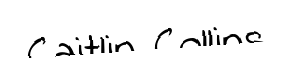 Caitlin Collins